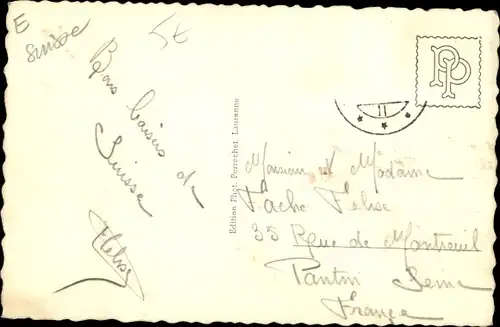 E
Suisse
5€
Bons baisers de
Suisse
Edition Phot. Perrochet, Lausanne
PP
II
Monsieur et Madame
Fache Félise
35 Rue de Montreuil
Pantin Seine
France